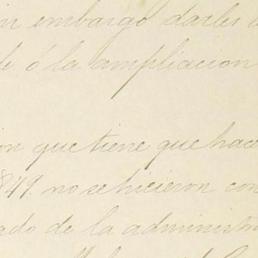 embargo darles
ó la ampliacion
que tiene que hace
1879. no se hicieron con
ado de la administr